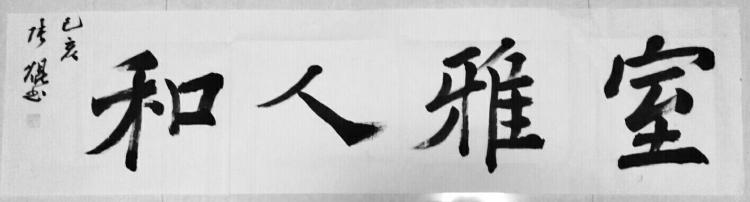 室雅人和
己亥